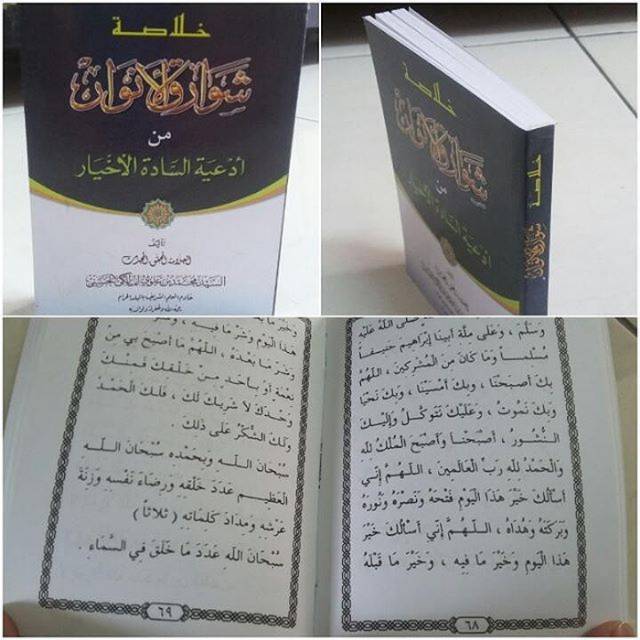 خلاصة
شوارق الأنوار
من
أدعية السادة الأخيار
تأليف
العلامة المحقق المحدث
السيد محمد بن علوي المالكي الحسني
خادم العلم الشريف بالبلد الحرام
خلاصة
شوارق الأنوار
من
أدعية السادة الأخيار
خلاصة
شوارق الأنوار
صلى الله عليه
وَسَلَّمَ ، وَعَلَى مِلَّةِ أَبِينَا إِبْرَاهِيمَ حَنِيفاً
مُسْلِماً وَمَا كَانَ مِنَ الْمُشْرِكِينَ ، اللَّهُمَّ
بِكَ أَصْبَحْنَا ، وَبِكَ أَمْسَيْنَا ، وَبِكَ نَحْيَا
وَبِكَ نَمُوتُ ، وَعَلَيْكَ نَتَوَكَّلُ وَإِلَيْكَ
النُّشُورُ ، أَصْبَحْنَا وَأَصْبَحَ الْمُلْكُ لِلَّهِ
وَالْحَمْدُ لِلَّهِ رَبِّ الْعَالَمِينَ ، اللَّهُمَّ إِنِّي
أَسْأَلُكَ خَيْرَ هَذَا الْيَوْمِ فَتْحَهُ وَنَصْرَهُ وَنُورَهُ
وَبَرَكَتَهُ وَهُدَاهُ ، اللَّهُمَّ إِنِّي أَسْأَلُكَ خَيْرَ
هَذَا الْيَوْمِ وَخَيْرَ مَا فِيهِ ، وَخَيْرَ مَا قَبْلَهُ
٦٨
وَخَيْرَ مَا
هَذَا الْيَوْمِ وَشَرِّ مَا فِيهِ ، وَشَرِّ
وَشَرِّ مَا بَعْدَهُ ، اللَّهُمَّ مَا أَصْبَحَ بِي مِنْ
نِعْمَةٍ أَوْ بِأَحَدٍ مِنْ خَلْقِكَ فَمِنْكَ
وَحْدَكَ لاَ شَرِيكَ لَكَ ، فَلَكَ الْحَمْدُ
وَلَكَ الشُّكْرُ عَلَى ذَلِكَ .
سُبْحَانَ اللَّهِ وَبِحَمْدِهِ سُبْحَانَ اللَّهِ
الْعَظِيمِ عَدَدَ خَلْقِهِ وَرِضَاءَ نَفْسِهِ وَزِنَةَ
عَرْشِهِ وَمِدَادَ كَلِمَاتِهِ ( ثلاثاً )
سُبْحَانَ اللَّهِ عَدَدَ مَا خَلَقَ فِي السَّمَاءِ .
٦٩